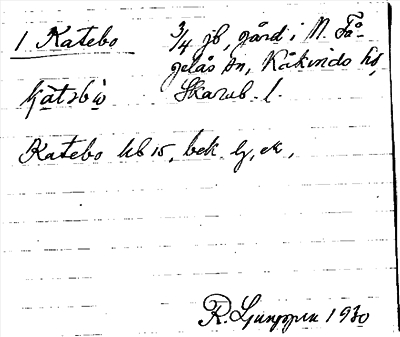 1 Katebo 3/4 jb, gård i N. Få-
gelås sn, Kåkinds hd,
Skarab. l.
Katebo hb 15, bek. lj, ek,
R. Ljunggren 1930